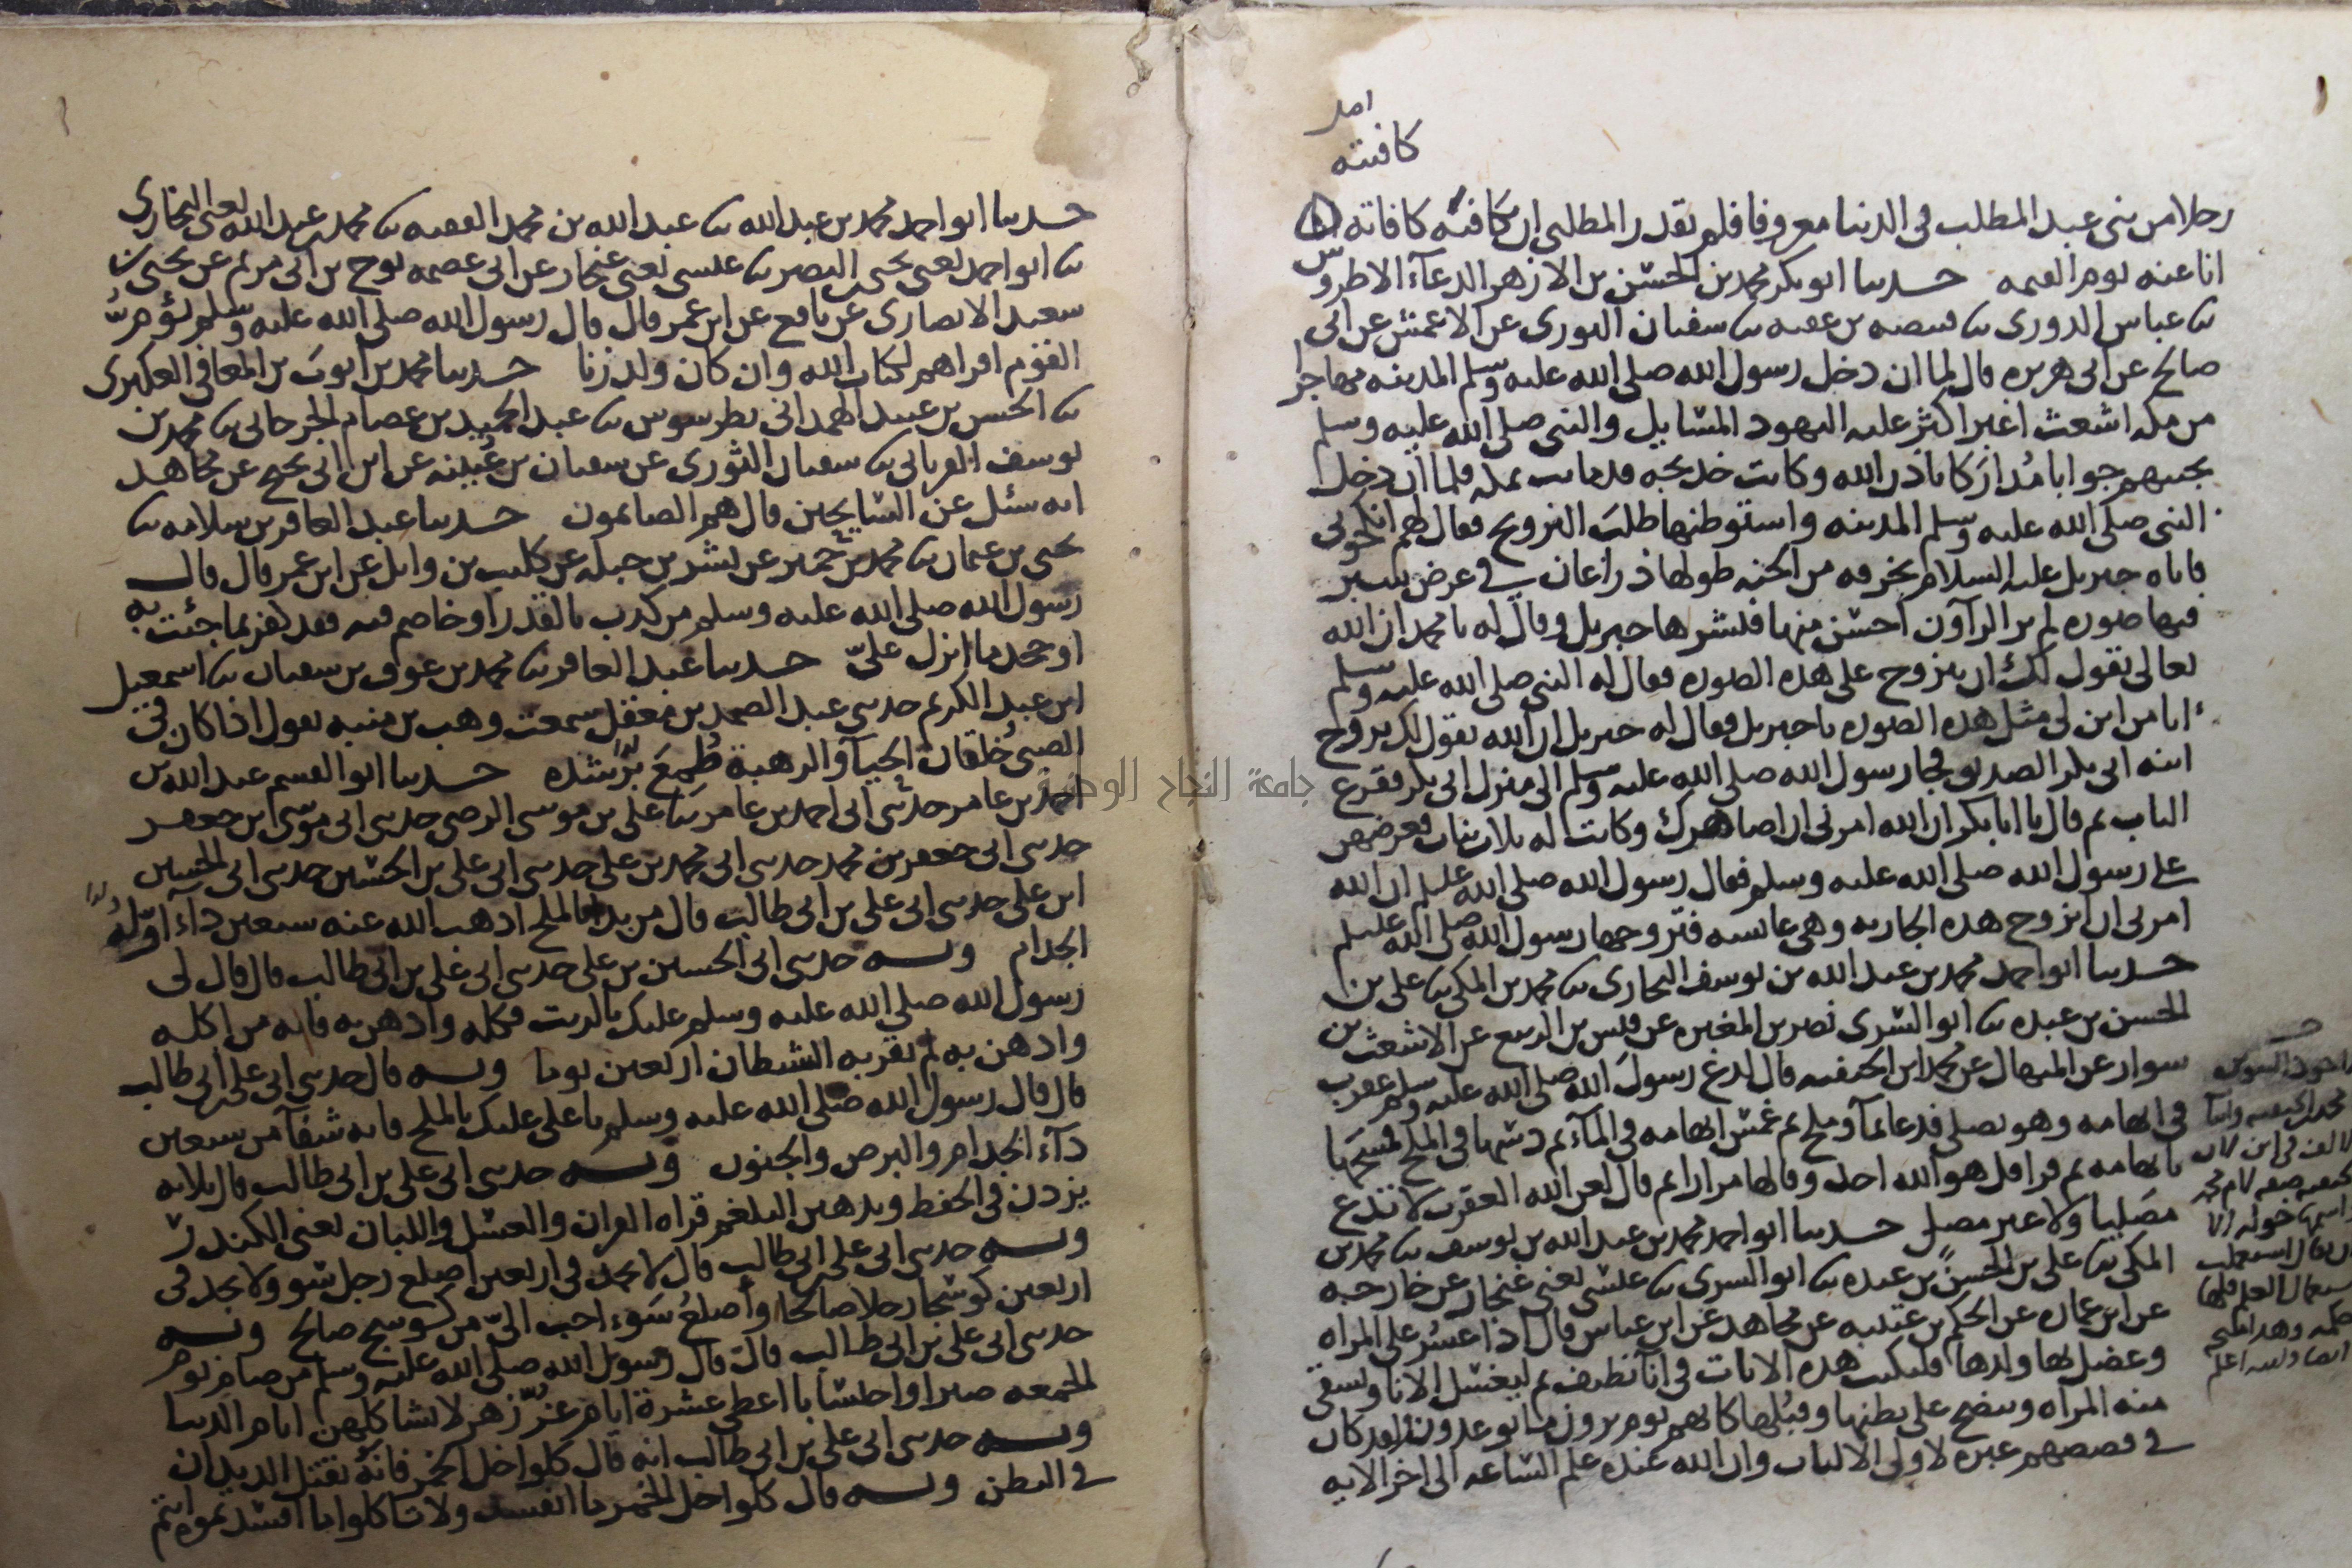 امد
كافيته
رجلا من بني عبد المطلب في الدنيا معروفا فلم يقدر المطلبي ان يكافئه كافاته
انا عنه يوم القيمه حدثنا ابو بكر محمد بن الحسن بن الازهر الدعآء الاطروش
ثنا عباس الدوري ثنا قبيصه بن عقبه ثنا سفيان الثوري عن الاعمش عن ابي
صالح عن ابي هريره قال لما ان دخل رسول الله صلى الله عليه وسلم المدينه مهاجرا
من مكه اشعث اغبر اكثر عليه اليهود المسايل والنبي صلى الله عليه وسلم
يجيبهم جوابا مداركا باذن الله وكانت خديجه قد ماتت بمكه فلما ان دخل
النبي صلى الله عليه وسلم المدينه واستوطنها طلب التزويج فقال لهم انكحوني
فاتاه جبريل عليه السلام بخرقه من الجنه طولها ذراعان في عرض شبر
فيها صوره لم ير الرآون احسن منها فنشرها جبريل وقال له يا محمد ان الله
تعالى يقول لك ان تزوج على هذه الصوره فقال له النبي صلى الله عليه وسلم
انا من اين لي مثل هذه الصوره يا جبريل فقال له جبريل ان الله يقول لك تزوج
ابنه ابي بكر الصديق فجا رسول الله صلى الله عليه وسلم الى منزل ابي بكر فقرع
الباب ثم قال يا ابا بكر ان الله امرني ان اصاهرك وكانت له ثلاث بنات فعرضهن
على رسول الله صلى الله عليه وسلم فقال رسول الله صلى الله عليه وسلم ان الله
امرني ان اتزوج هذه الجاريه وهي عائشه فتزوجها رسول الله صلى الله عليه وسلم
حدثنا ابو احمد محمد بن عبد الله بن يوسف البخاري ثنا محمد بن المكي ثنا علي بن
الحسن بن عبده ثنا ابو السري نصر بن المغيره عن قيس بن الربيع عن الاشعث بن
سوار عن المنهال عن محمد ابن الحنفيه قال لدغ رسول الله صلى الله عليه وسلم عقرب
في ابهامه وهو يصلي فدعا بمآ وملح ثم غمس ابهامه في المآء ثم دسها في الملح فمسحها
بابهامه ثم قرا قل هو الله احد وقالها مرارا ثم قال لعن الله العقرب لا تدع
مصليا ولا غير مصل حدثنا ابو احمد محمد بن عبد الله بن يوسف ثنا محمد بن
المكي ثنا علي بن الحسن بن عبده ثنا ابو السري ثنا عيسى يعني غنجار عن خارجه
عن ابن عماره عن الحكم بن عتيبه عن مجاهد عن ابن عباس قال اذا عسر على المراه
وعضل بها ولدها فليكتب هذه الايات في انا نظيف ثم ليغسل الانا وتسقى
منه المراه وينضح على بطنها وقبلها كانهم يوم يرون ما يوعدون ولقد كان
في قصصهم عبره لاولي الالباب وان الله عنده علم الساعه الى اخر الايه
حدثنا ابو احمد محمد بن عبد الله ثنا عبد الله بن محمد الفقيه ثنا محمد بن عبد الله يعني البخاري
ثنا ابو احمد يعني يحيى بن النصر ثنا عيسى يعني غنجار عن ابي عصمه نوح بن ابي مريم عن يحيى بن
سعيد الانصاري عن نافع عن ابن عمر قال قال رسول الله صلى الله عليه وسلم يؤم
القوم اقراهم لكتاب الله وان كان ولد زنا حدثنا محمد بن ايوب بن المعافى العكبري
ثنا الحسن بن عبيد الهمداني بطرسوس ثنا عبد الحميد بن عصام الجرجاني ثنا محمد بن
يوسف الفريابي ثنا سفيان الثوري عن سفيان بن عيينه عن ابن ابي نجيح عن مجاهد
انه سئل عن السايحين قال هم الصائمون حدثنا عبد الغافر بن سلامه ثنا
يحيى بن عثمان ثنا محمد بن حمير عن بشر بن جبله عن كليب بن وايل عن ابن عمر قال قال
رسول الله صلى الله عليه وسلم من كذب بالقدر او خاصم فيه فقد كفر بما جئت به
او جحد ما انزل علي حدثنا عبد الغافر ثنا محمد بن عوف بن سفيان ثنا اسمعيل
ابن عبد الكريم حدثني عبد الصمد بن معقل سمعت وهب بن منبه يقول اذا كان في
الصبي خلقان الحيآ والرهبة طمع برشده حدثنا ابو القسم عبد الله بن
احمد بن عامر حدثني ابي احمد بن عامر ثنا علي بن موسى الرضي حدثني ابي موسى ابن جعفر
حدثني ابي جعفر بن محمد حدثني ابي محمد بن علي حدثني ابي علي بن الحسين حدثني ابي الحسين
ابن علي حدثني ابي علي بن ابي طالب قال من بدا بالملح اذهب الله عنه سبعين دآء اوله
الجذام وبه حدثني ابي الحسين بن علي حدثني ابي علي بن ابي طالب قال قال لي
رسول الله صلى الله عليه وسلم عليك بالزيت فكله وادهن به فانه من اكله
وادهن به لم يقربه الشيطان اربعين يوما وبه قال حدثني ابي علي بن ابي طالب
قال قال رسول الله صلى الله عليه وسلم يا علي عليك بالملح فانه شفآ من سبعين
دآء الجذام والبرص والجنون وبه حدثني ابي علي بن ابي طالب قال ثلاثه
يزدن في الحفظ ويذهبن البلغم قراه القران والعسل واللبان يعني الكندر
وبه حدثني ابي علي بن ابي طالب قال لا تجد في اربعين اصلع رجل سو ولا تجد في
اربعين كوسجا رجلا صالحا واصلع سوء احب الي من كوسج صالح وبه
حدثني ابي علي بن ابي طالب قال قال رسول الله صلى الله عليه وسلم من صام يوم
الجمعه صبرا واحتسابا اعطي عشرة ايام غر زهر لا تشاكلهن ايام الدنيا
وبه حدثني ابي علي بن ابي طالب انه قال كلوا خل الخمر فانه يقتل الديدان
في البطن وبه قال كلوا خل الخمر ما انفسد ولا تاكلوا ما افسدتموه انتم
جامعة النجاح الوطنية